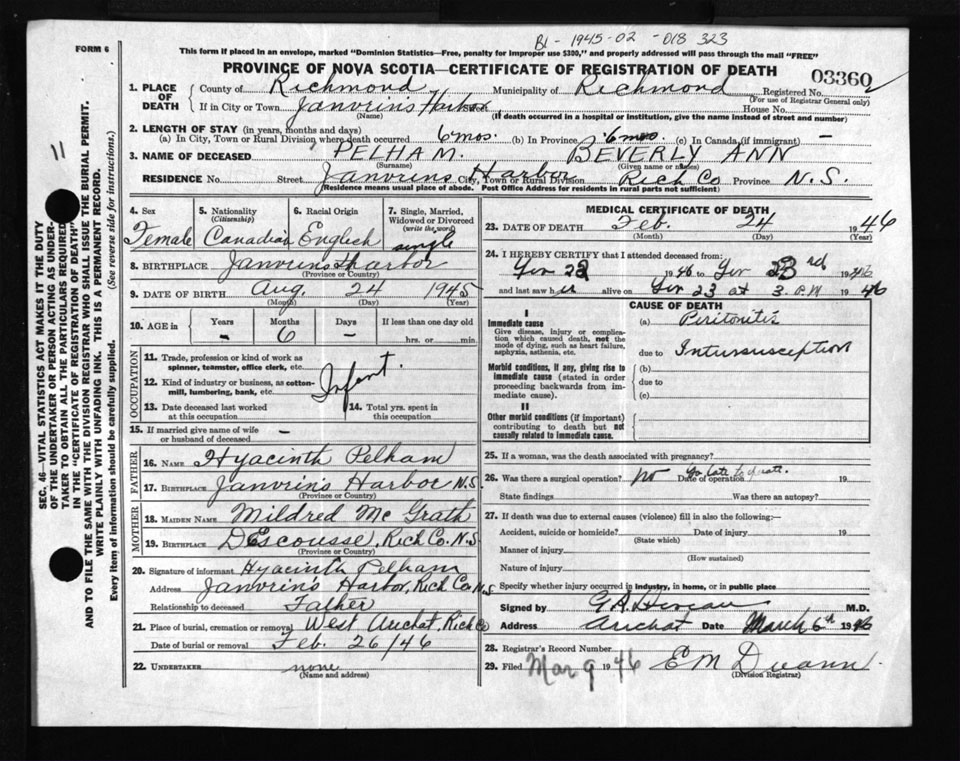 B1 - 1945-02-018 323
FORM 6
This form if placed in an envelope, marked "Dominion Statistics—Free, penalty for improper use $300," and properly addressed will pass through the mail "FREE"
PROVINCE OF NOVA SCOTIA—CERTIFICATE OF REGISTRATION OF DEATH
03360
1. PLACE OF DEATH { County of Richmond Municipality of Richmond Registered No.
(For use of Registrar General only)
If in City or Town Janvrins Harbor House No.
(Name) (If death occurred in a hospital or institution, give the name instead of street and number)
2. LENGTH OF STAY (in years, months and days)
(a) In City, Town or Rural Division where death occurred 6 mos. (b) In Province 6 mos. (c) In Canada (if immigrant) —
3. NAME OF DECEASED PELHAM. BEVERLY ANN
(Surname) (Given name or names)
RESIDENCE No. Street Janvrins Harbor City, Town or Rural Division Rich Co Province N.S.
(Residence means usual place of abode. Post Office Address for residents in rural parts not sufficient)
4. Sex Female
5. Nationality (Citizenship) Canadian
6. Racial Origin English
7. Single, Married, Widowed or Divorced (write the word) single
8. BIRTHPLACE Janvrins Harbor
(Province or Country)
9. DATE OF BIRTH Aug. 24 1945
(Month) (Day) (Year)
10. AGE in { Years Months Days If less than one day old
– 6 – hrs. or min.
OCCUPATION
11. Trade, profession or kind of work as spinner, teamster, office clerk, etc.
12. Kind of industry or business, as cotton-mill, lumbering, bank, etc. Infant.
13. Date deceased last worked at this occupation
14. Total yrs. spent in this occupation
15. If married give name of wife or husband of deceased —
FATHER
16. NAME Hyacinth Pelham
17. BIRTHPLACE Janvrin's Harbor N.S.
(Province or Country)
MOTHER
18. MAIDEN NAME Mildred Mc Grath
19. BIRTHPLACE D'Escousse, Rich Co. N.S.
(Province or Country)
20. Signature of informant Hyacinth Pelham
Address Janvrin's Harbor, Rich Co. N.S
Relationship to deceased Father
21. Place of burial, cremation or removal West Arichat, Rich Co
Date of burial or removal Feb. 26/46
22. UNDERTAKER none
(Name and address)
MEDICAL CERTIFICATE OF DEATH
23. DATE OF DEATH Feb. 24 1946
(Month) (Day) (Year)
24. I HEREBY CERTIFY that I attended deceased from:
23 1946 to 23rd 1946
and last saw h er alive on 23 at 3 P.M 1946
CAUSE OF DEATH
I
Immediate cause
Give disease, injury or complication which caused death, not the mode of dying, such as heart failure, asphyxia, asthenia, etc.
(a) Peritonitis
due to Intursusception
Morbid conditions, if any, giving rise to immediate cause (stated in order proceeding backwards from immediate cause).
(b)
due to
(c)
II
Other morbid conditions (if important) contributing to death but not causally related to immediate cause.
25. If a woman, was the death associated with pregnancy?
26. Was there a surgical operation? No Date of operation 19
State findings Was there an autopsy?
27. If death was due to external causes (violence) fill in also the following:—
Accident, suicide or homicide? Date of injury 19
(State which)
Manner of injury
(How sustained)
Nature of injury
Specify whether injury occurred in industry, in home, or in public place
Signed by M.D.
Address Arichat Date March 6th 1946
28. Registrar's Record Number
29. Filed Mar 9 1946 E M
(Division Registrar)
11
SEC. 46—VITAL STATISTICS ACT MAKES IT THE DUTY
OF THE UNDERTAKER OR PERSON ACTING AS UNDER-
TAKER TO OBTAIN ALL THE PARTICULARS REQUIRED
IN THE "CERTIFICATE OF REGISTRATION OF DEATH"
AND TO FILE THE SAME WITH THE DIVISION REGISTRAR WHO SHALL ISSUE THE BURIAL PERMIT.
WRITE PLAINLY WITH UNFADING INK. THIS IS A PERMANENT RECORD.
Every item of information should be carefully supplied. (See reverse side for instructions.)